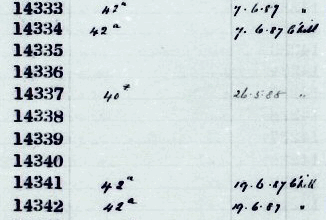 14333 42ᵃ 7.6.87 "
14334 42ᵃ 7.6.87 C'hill
14335
14336
14337 40 26.5.88 "
14338
14339
14340
14341 42ᵃ 19.6.87 C'hill
14342 42ᵃ 19.6.87 "